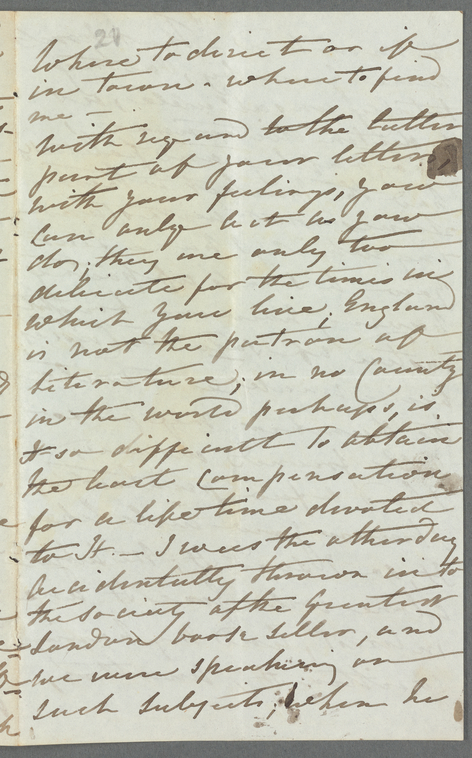 24
Where to direct or if
in town - where to find
me -
With regard to the latter
part of your letter,
with your feelings, you
can only act as you
do; they are only too
delicate for the times in
which you live; England
is not the patron of
Literature, in no County
in the world perhaps, is
It so difficult to obtain
the least compensation
for a life time devoted
to It - I was the other day
accidentally thrown in to
the society of the Greatest
London book seller, and
we were speaking on
such subjects, when he